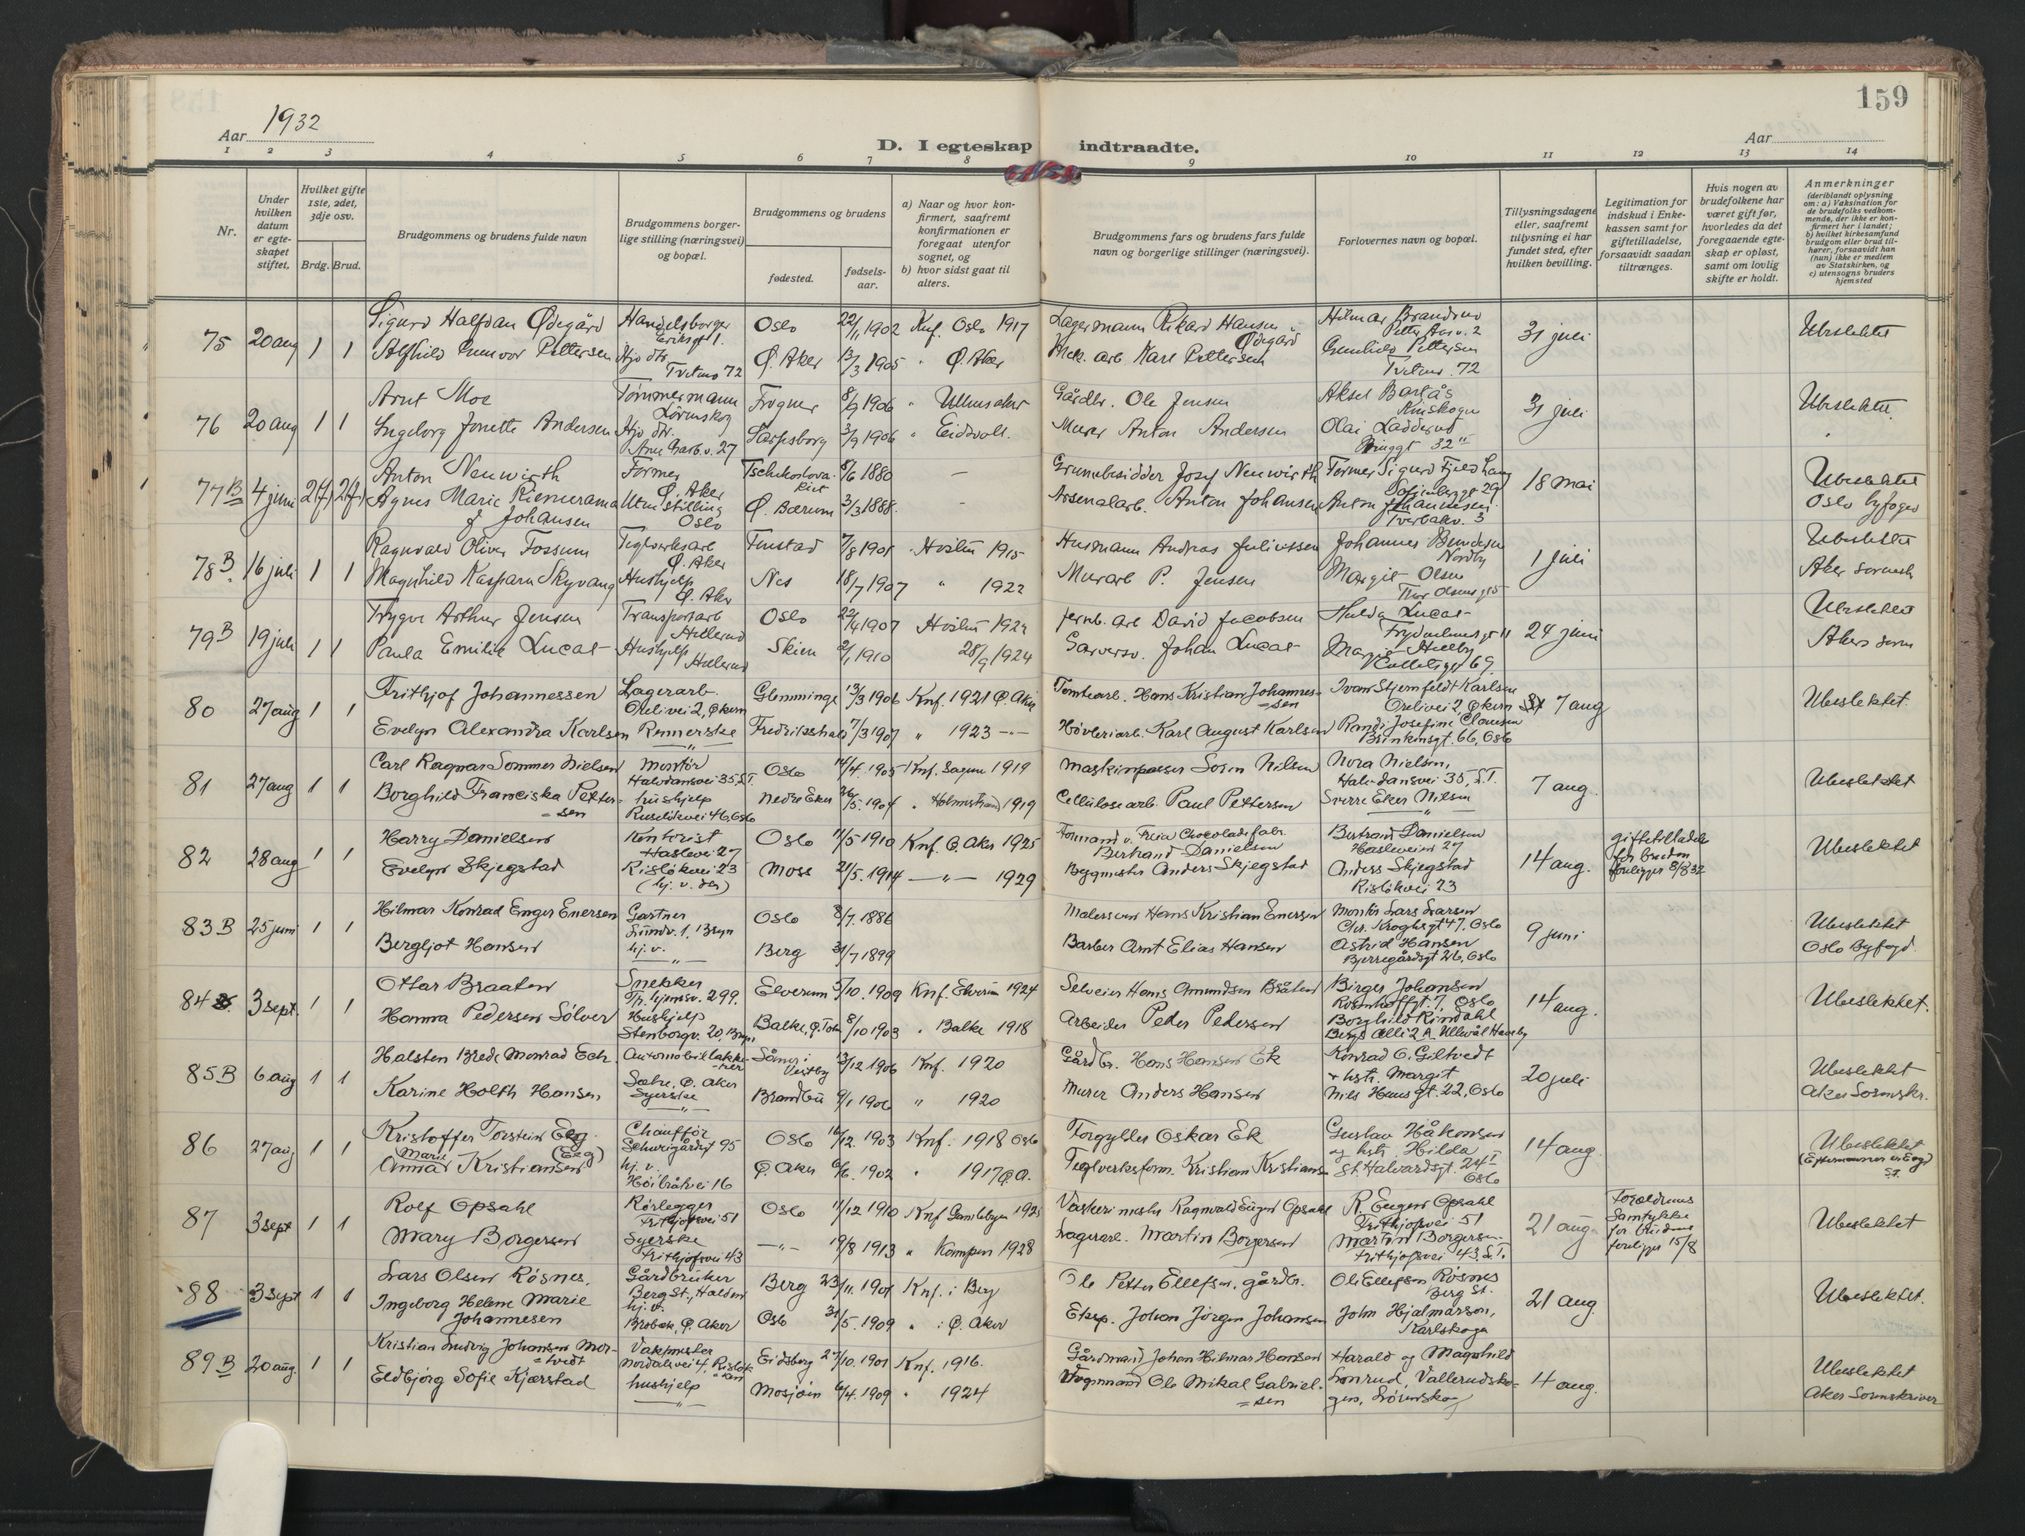 159
Aar 1932
D. I egteskap indtraadte.
Aar
1 2 3 4 5 6 7 8 9 10 11 12 13 14
Nr.
Under hvilken datum er egteskapet stiftet.
Hvilket gifte 1ste, 2det, 3dje osv.
Brdg. Brud.
Brudgommens og brudens fulde navn
Brudgommens borgerlige stilling (næringsvei) og bopæl.
Brudgommens og brudens
fødested.
fødselsaar.
a) Naar og hvor konfirmert, saafremt konfirmationen er foregaat utenfor sognet, og
b) hvor sidst gaat til alters.
Brudgommens fars og brudens fars fulde navn og borgerlige stillinger (næringsvei).
Forlovernes navn og bopæl.
Tillysningsdagene eller, saafremt tillysning ei har fundet sted, efter hvilken bevilling.
Legitimation for indskud i Enkekassen samt for giftetilladelse, forsaavidt saadan tiltrænges.
Hvis nogen av brudefolkene har været gift før, hvorledes da det foregaaende egteskap er opløst, samt om lovlig skifte er holdt.
Anmerkninger
(deriblandt oplysning om: a) Vaksination for de brudefolks vedkommende, der ikke er konfirmert her i landet; b) hvilket kirkesamfund brudgom eller brud tilhører, forsaavidt han (hun) ikke er medlem av Statskirken, og c) utensogns bruders hjemsted
75 20 aug 1 1 Sigurd Halfdan Ødegård Handelsborger Eriksgt 1. Oslo 22/1 1902 Knf. Oslo 1917 Lagermann Rikard Hansen Ødegård Hilmar 31 juli Ubeslektet
Alfhild Gunvor Pettersen Hjv dtr. Tvetenv 72 Ø. Aker 13/3 1905 " Ø. Aker Mek. arb Karl Pettersen Gunhild Pettersen Tvetenv. 72
76 20 aug 1 1 Arnt Moe Tømmermann Lørenskog Frogner 8/9 1906 " Ullensaker Gårdbr. Ole Jensen Aksel 31 juli Ubeslektet
Ingeborg Jonette Andersen Hjv dtr. 27 Sarpsborg 3/9 1906 " Eidsvoll. Murer Anton Andersen Olai Ladderud
77 B 4 juni 2(f) 2(f) Anton Neuwirth Former Ø. Aker 8/6 1880 – Grunnbesidder Josef Neuwirth Former Sigurd 18 mai Ubeslektet
Agnes Marie Riemerama f. Johansen Uten stilling Oslo Ø. Bærum 3/3 1888. – Arsenalarb. Anton Johansen Anton Johannesen Tverbakv. 3 Oslo byfoged
78 B. 16 juli 1 1 Ragnvald Oliver Fossum Teglverksarb Ø. Aker Finstad 7/8 1901 Høstm 1915 Husmann Andreas Juliussen Johannes Nordby 1 juli Ubeslektet
Magnhild Kaspara Skyvang Hushjelp Ø. Aker Nes 18/7 1907 " 1922 Murarb P. Jensen Margit Olsen Thor Olsens gt 5 Aker sorensk
79 B 19 juli 1 1 Trygve Arthur Jensen Transportarb Hellerud Oslo 22/4 1907 1922 Jernb. arb David Jacobsen Hulda Lucas 24 juni Ubeslektet
Paula Emilie Lucas Hushjelp Hellerud Skien 2/1 1910 28/9 1924 Garversv. Johan Lucas 69 Akers soren
80 27 aug 1 1 Frithjof Johannessen Lagerarb. Orelivei 2, Økern Glemminge 13/3 1906 Knf. 1921 Ø. Aker Tomtearb. Hans Kristian Johannessen Ivan Stjernfeldt Karlsen Orelivei 2, Økern 7 aug Ubeslektet.
Evelyn Alexandra Karlsen Rennerske " Fredrikshald 7/3 1907 " 1923 –"– Høvleriarb. Karl August Karlsen Randi Josefine Clausen Brinkensgt. 66, Oslo
81 27 aug 1 1 Carl Ragnar Sommer Nielsen Montør Halvdansvei 35, S.T. Oslo 14/4. 1905 Knf. Sagene 1919 Maskinpasser Soren Nilsen Nora Nielsen, Halvdansvei 35, S.T. 7 aug. Ubeslektet
Borghild Franciska Pettersen hushjelp 46, Oslo Nedre Eker 26/5. 1904 " Holmestrand 1919 Cellulosearb. Paul Pettersen Sverre Eker Nilsen "
82 28 aug 1 1 Harry Danielsen Kontorist Haslevei 27 Oslo 11/5 1910 Knf. Ø. Aker 1925 Formand v. Freia Chocoladefabr. Bertrand Danielsen Bertrand Danielsen Hasleveien 27 14 aug. giftetilladelse for bruden foreligger 8/8 32 Ubeslektet
Evelyn Skjegstad Risløkvei 23 (hj. v. der) Moss 21/5. 1914 –"– 1929 Byggmester Anders Skjegstad Anders Skjegstad Risløkvei 23
83 B 25 juni 1 1 Hilmar Konrad Enger Enersen Gartner Lundv. 1, Bryn Oslo 8/7. 1886 Malersvenn Hans Kristian Enersen Montør Lars Larsen Chr. Kroghsgt 47, Oslo 9 juni Ubeslektet
Bergljot Hansen hj. v. " Berg 31/7 1899 Barber Arnt Elias Hansen Astrid Hansen Bjerregårdsgt 26, Oslo Oslo Byfogd.
84 3 sept. 1 1 Ottar Braaten Snekker Tr.hjemsv. 299. Elverum 5/10. 1909 Knf. Elverum 1924 Selveier Hans Amundsen Bråten Birger Johansen Rosenhoffgt. 7, Oslo 14 aug. Ubeslektet.
Hanna Pedersen Sølver Hushjelp Stenborgv. 20, Bryn Balke, Ø. Toten 8/10 1903 " Balke 1918 Arbeider Peder Pedersen Borghild Rindahl Bergs Allé 2 A. Ullevål Haveby
85 B 6 aug 1 1 Halsten Brede Monrad Eck Automobillakkerer Sæter, Ø. Aker Såner i Vestby 13/12 1906 Knf. 1920 Gårdbr. Hans Hansen Ek Konrad O. Giltvedt & hstr. Margit 20 juli Ubeslektet
Karine Holth Hansen Syerske " Brandbu 9/1 1906 " 1920 Murer Anders Hansen Nils Huus gt. 22, Oslo Aker Sorenskr.
86 27 aug 1 1 Kristoffer Torstein Eeg Chauffør Schweigårdsgt 95 Oslo 16/12 1903 Knf. 1918 Oslo Forgyller Oskar Ek Gustav Håkonsen og hstr. Hilda 14 aug. Ubeslektet
Anna Marie Kristiansen (Eeg) hj. v. Høibråtvei 16 Ø. Aker 6/6. 1902 " 1917 Ø. A. Teglverksform. Kristian Kristians- St. Halvardsgt. 24 I Oslo (Efternavnet er Eeg) S.T.
87 3 sept 1 1 Rolf Opsahl Rørlegger Frithjofsvei 51 Oslo 11/12 1910 Knf Gamlebyen 1925 Vaskerimester Ragnvald Eugen Opsahl R. Eugen Opsahl Frithjofsvei 51 21 aug Forældrenes Samtykke for bruden foreligger 15/8 Ubeslektet
Mary Borgersen Syerske Frithjofsvei 43 –"– 19/8 1913 " Kampen 1928 Lagerarb. Martin Borgersen Martin Borgersen. Frithjofsvei 43 S.T.
88 3 sept 1 1 Lars Olsen Røsnes. Gårdbruker Berg St., Halden Berg 23/11. 1901 Knf. i Berg Ole Petter Ellefsen, gårdbr. Ole Ellefsen Røsnes Berg St. 21 aug. Ubeslektet.
Ingeborg Helene Marie Johannesen hj. v. Brobekk, Ø. Aker Oslo 31/5. 1909 " i Ø. Aker Eksp. Johan Jørgen Johansen John Hjalmarson, Karlskoga
89 B 20 aug. 1 1 Kristian Ludvig Johansen Mortvedt Vaktmester Nordalsvei 4, Risløkken Eidsberg 27/10. 1901 Knf. 1916. Gårdmand Johan Hilmar Hansen Harald og Magnhild 4 aug. Ubeslektet
Eldbjørg Sofie Kjærstad hushjelp " Mosjøen 6/4. 1909 " 1924 Vognmand Ole Mikal Gabrielsen Lonrud, Vallerudskogen, Lørenskog Aker Sorenskriver